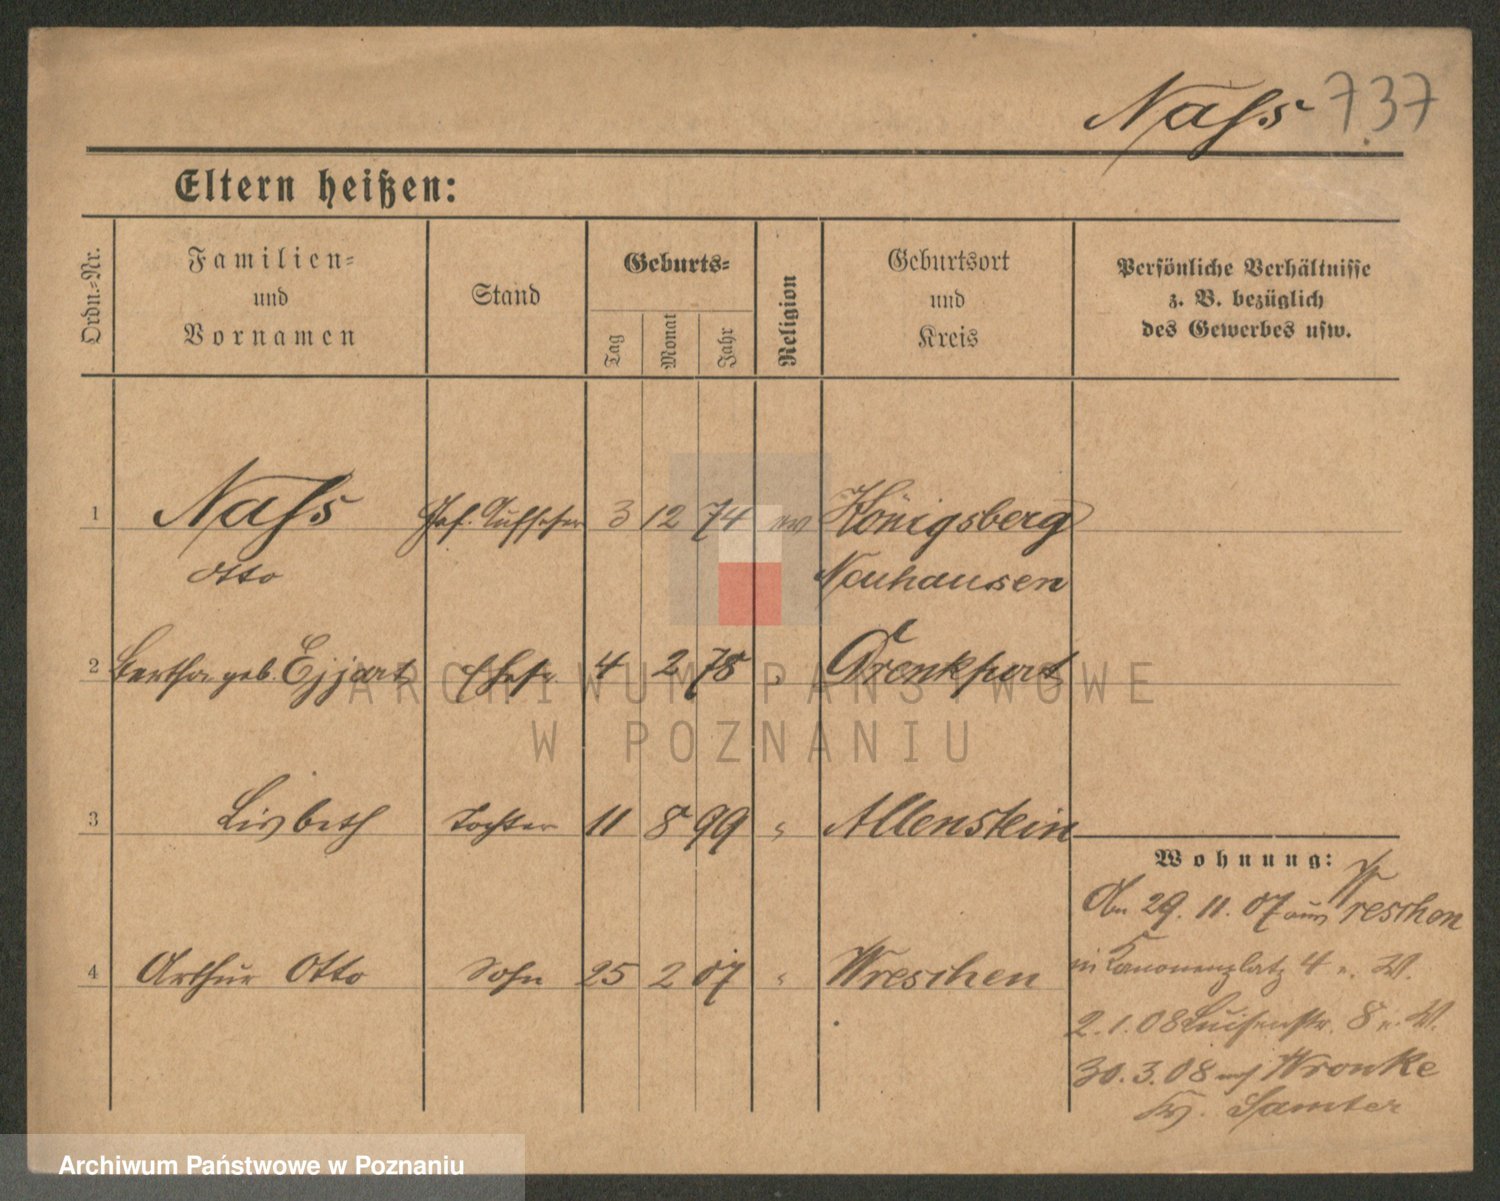 Nass 737
Eltern heißen:
Ordn.-Nr.
Familien-
und
Vornamen
Stand
Geburts-
Tag
Monat
Jahr
Religion
Geburtsort
und
Kreis
Persönliche Verhältnisse
z. B. bezüglich
des Gewerbes usw.
1 Nass Gef. Aufseher 3 12 74 ev Königsberg
Otto Neuhausen
2 Bertha geb. Ehefr. 4 2 78 " Drenkfurt
3 Lisbeth Tochter 11 8 99 " Allenstein
Wohnung:
29. 11. 07 aus Wreschen
4 Arthur Otto Sohn 25 2 07 " Wreschen
in Kanonenplatz 4 W.
2.1.08 Luisenstr. 8 W.
30.3.08 Wronke
Samter
ARCHIWUM PAŃSTWOWE
W POZNANIU
Archiwum Państwowe w Poznaniu